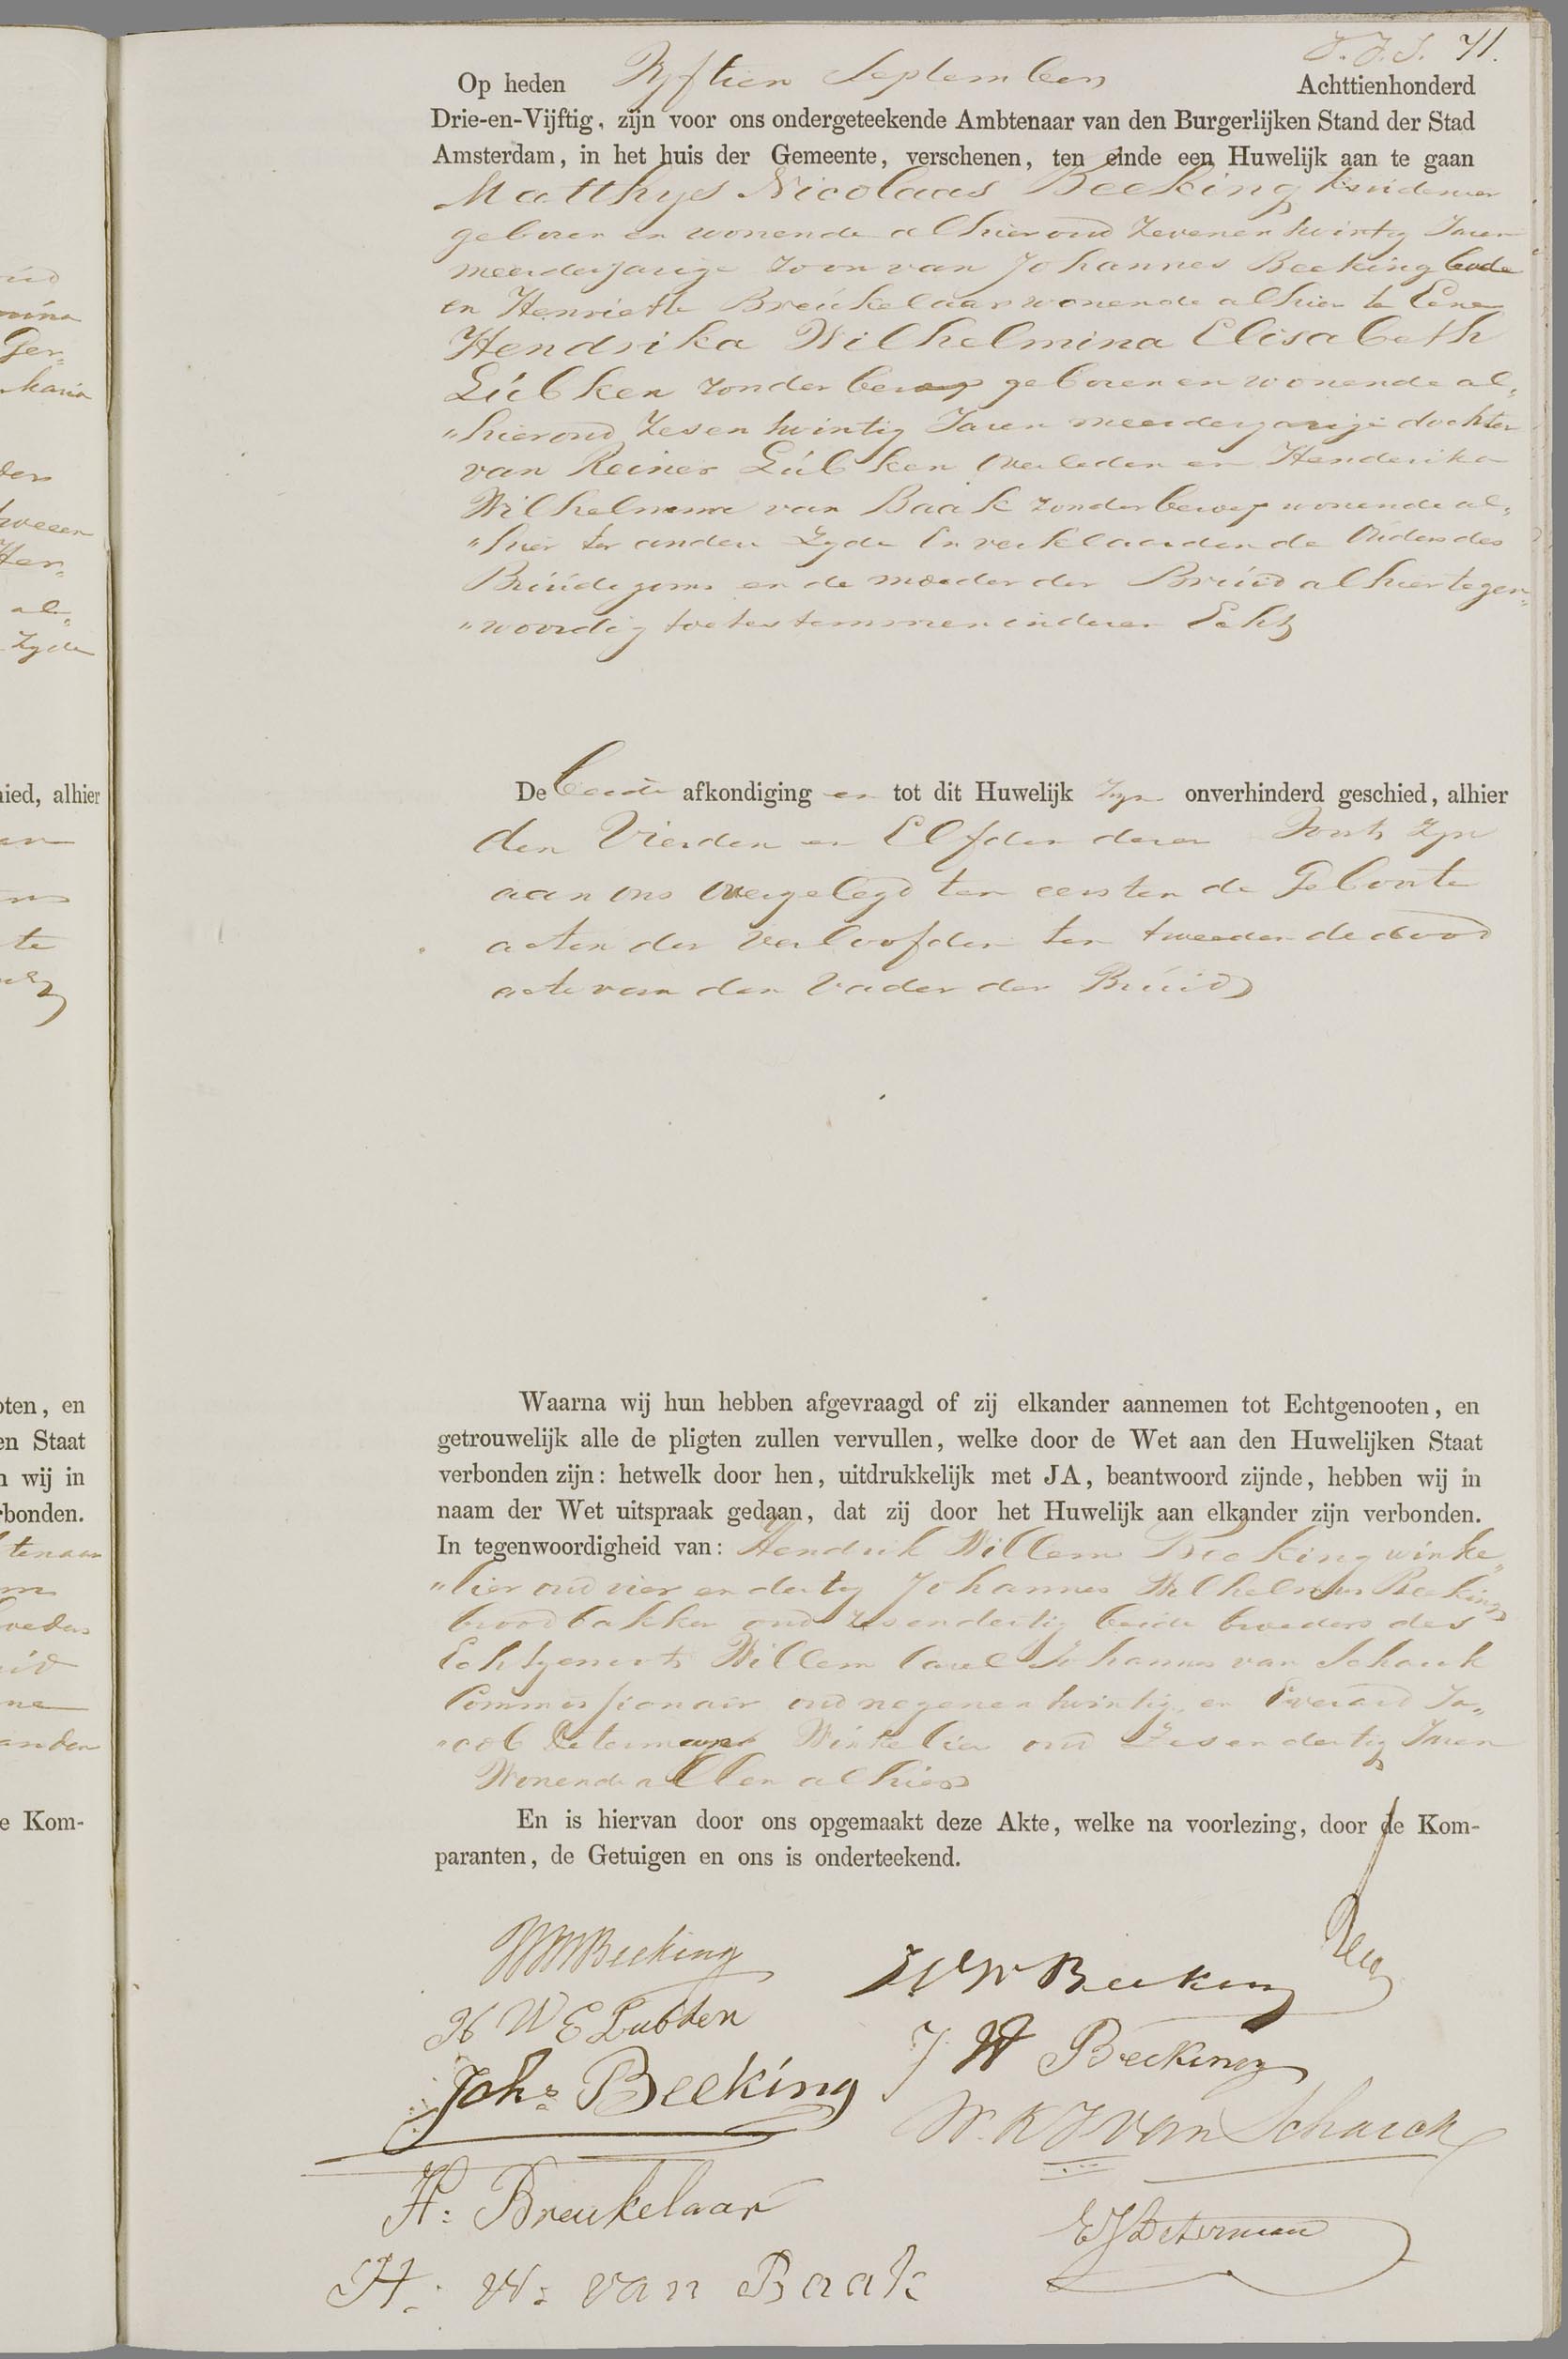 71.
Op heden Vyftien September Achttienhonderd
Drie-en-Vijftig, zijn voor ons ondergeteekende Ambtenaar van den Burgerlijken Stand der Stad
Amsterdam, in het huis der Gemeente, verschenen, ten einde een Huwelijk aan te gaan
Matthys Nicolaas Beeking
geboren en wonende alhier oud Zevenentwintig Jaren
meerderjarige zoon van Johannes Beeking bode
en Henriette Breukelaar wonende alhier te Eene
Hendrika Wilhelmina Elisabeth
Lúbken zonder beroep geboren en wonende al„
„hier oud Zesentwintig Jaren meerderjarige dochter
van Reiner Lúbken overleden en Henderika
Wilhelmina van Baak zonder beroep wonende al„
„hier ter andere Zyde En verklaarden de Ouders des
Brúidegoms en de moeder der Brúid alhier tegen„
„woordig toetestemmen in dezen Echt
De beide afkondiging en tot dit Huwelijk Zyn onverhinderd geschied, alhier
den Vierden en Elfden dezer Voorts Zyn
aan ons overgelegd ten eersten de Geboorte
acten der verloofden ten tweeden de dood
acte van den Vader der Brúid
Waarna wij hun hebben afgevraagd of zij elkander aannemen tot Echtgenooten, en
getrouwelijk alle de pligten zullen vervullen, welke door de Wet aan den Huwelijken Staat
verbonden zijn: hetwelk door hen, uitdrukkelijk met JA, beantwoord zijnde, hebben wij in
naam der Wet uitspraak gedaan, dat zij door het Huwelijk aan elkander zijn verbonden.
In tegenwoordigheid van: Hendrik Willem Beeking winke„
„lier oud vier en dertig Johannes Wilhelmus Beeking
broodbakker oud zesendertig beide broeders des
Echtgenoots Willem Carel Johannes van Schaick
Commissionair oud negenentwintig en Everard Ja„
„cob Determan Winkelier oud Zesendertig Jaren
Wonende allen alhier
En is hiervan door ons opgemaakt deze Akte, welke na voorlezing, door de Kom-
paranten, de Getuigen en ons is onderteekend.
MNBeeking
HW Beeking
H W E Lubken
J W Beeking
Johs Beeking
W. K J van Schaick
H: Breukelaar
EJDeterman
H: W: van Baak